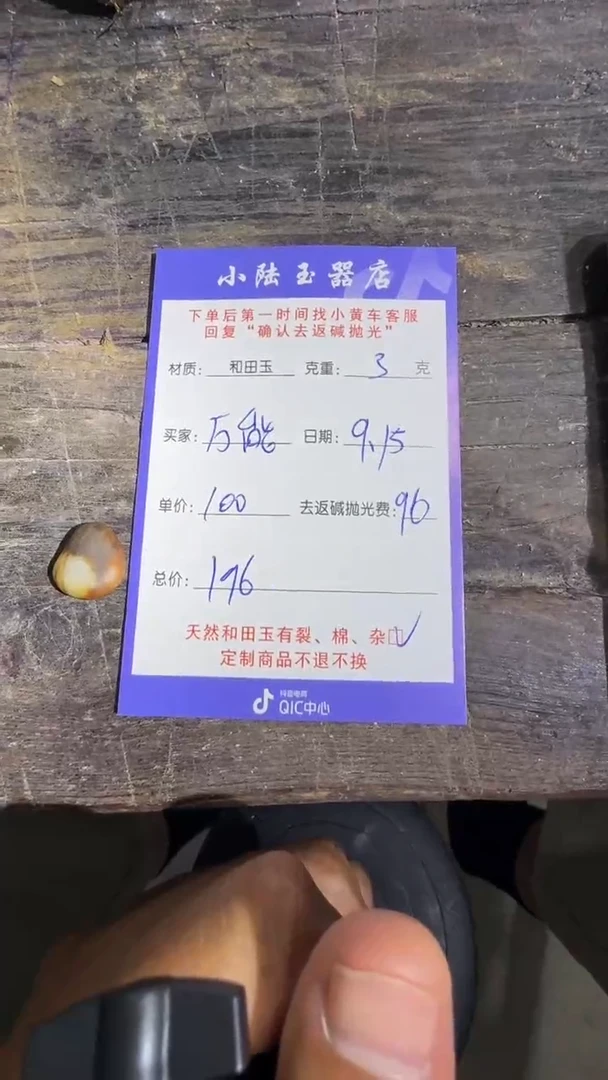 小陆玉器店
下单后第一时间找小黄车客服
回复“确认去返碱抛光”
材质: 和田玉 克重: 3 克
买家: 万能 日期: 9.15
单价: 100 去返碱抛光费: 96
总价: 196
天然和田玉有裂、棉、杂
定制商品不退不换
抖音电商
QIC中心